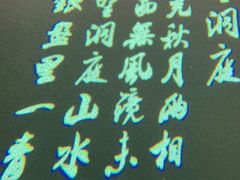 洞庭
光秋月两相
面無風镜未
望洞庭山水
銀盘里一青